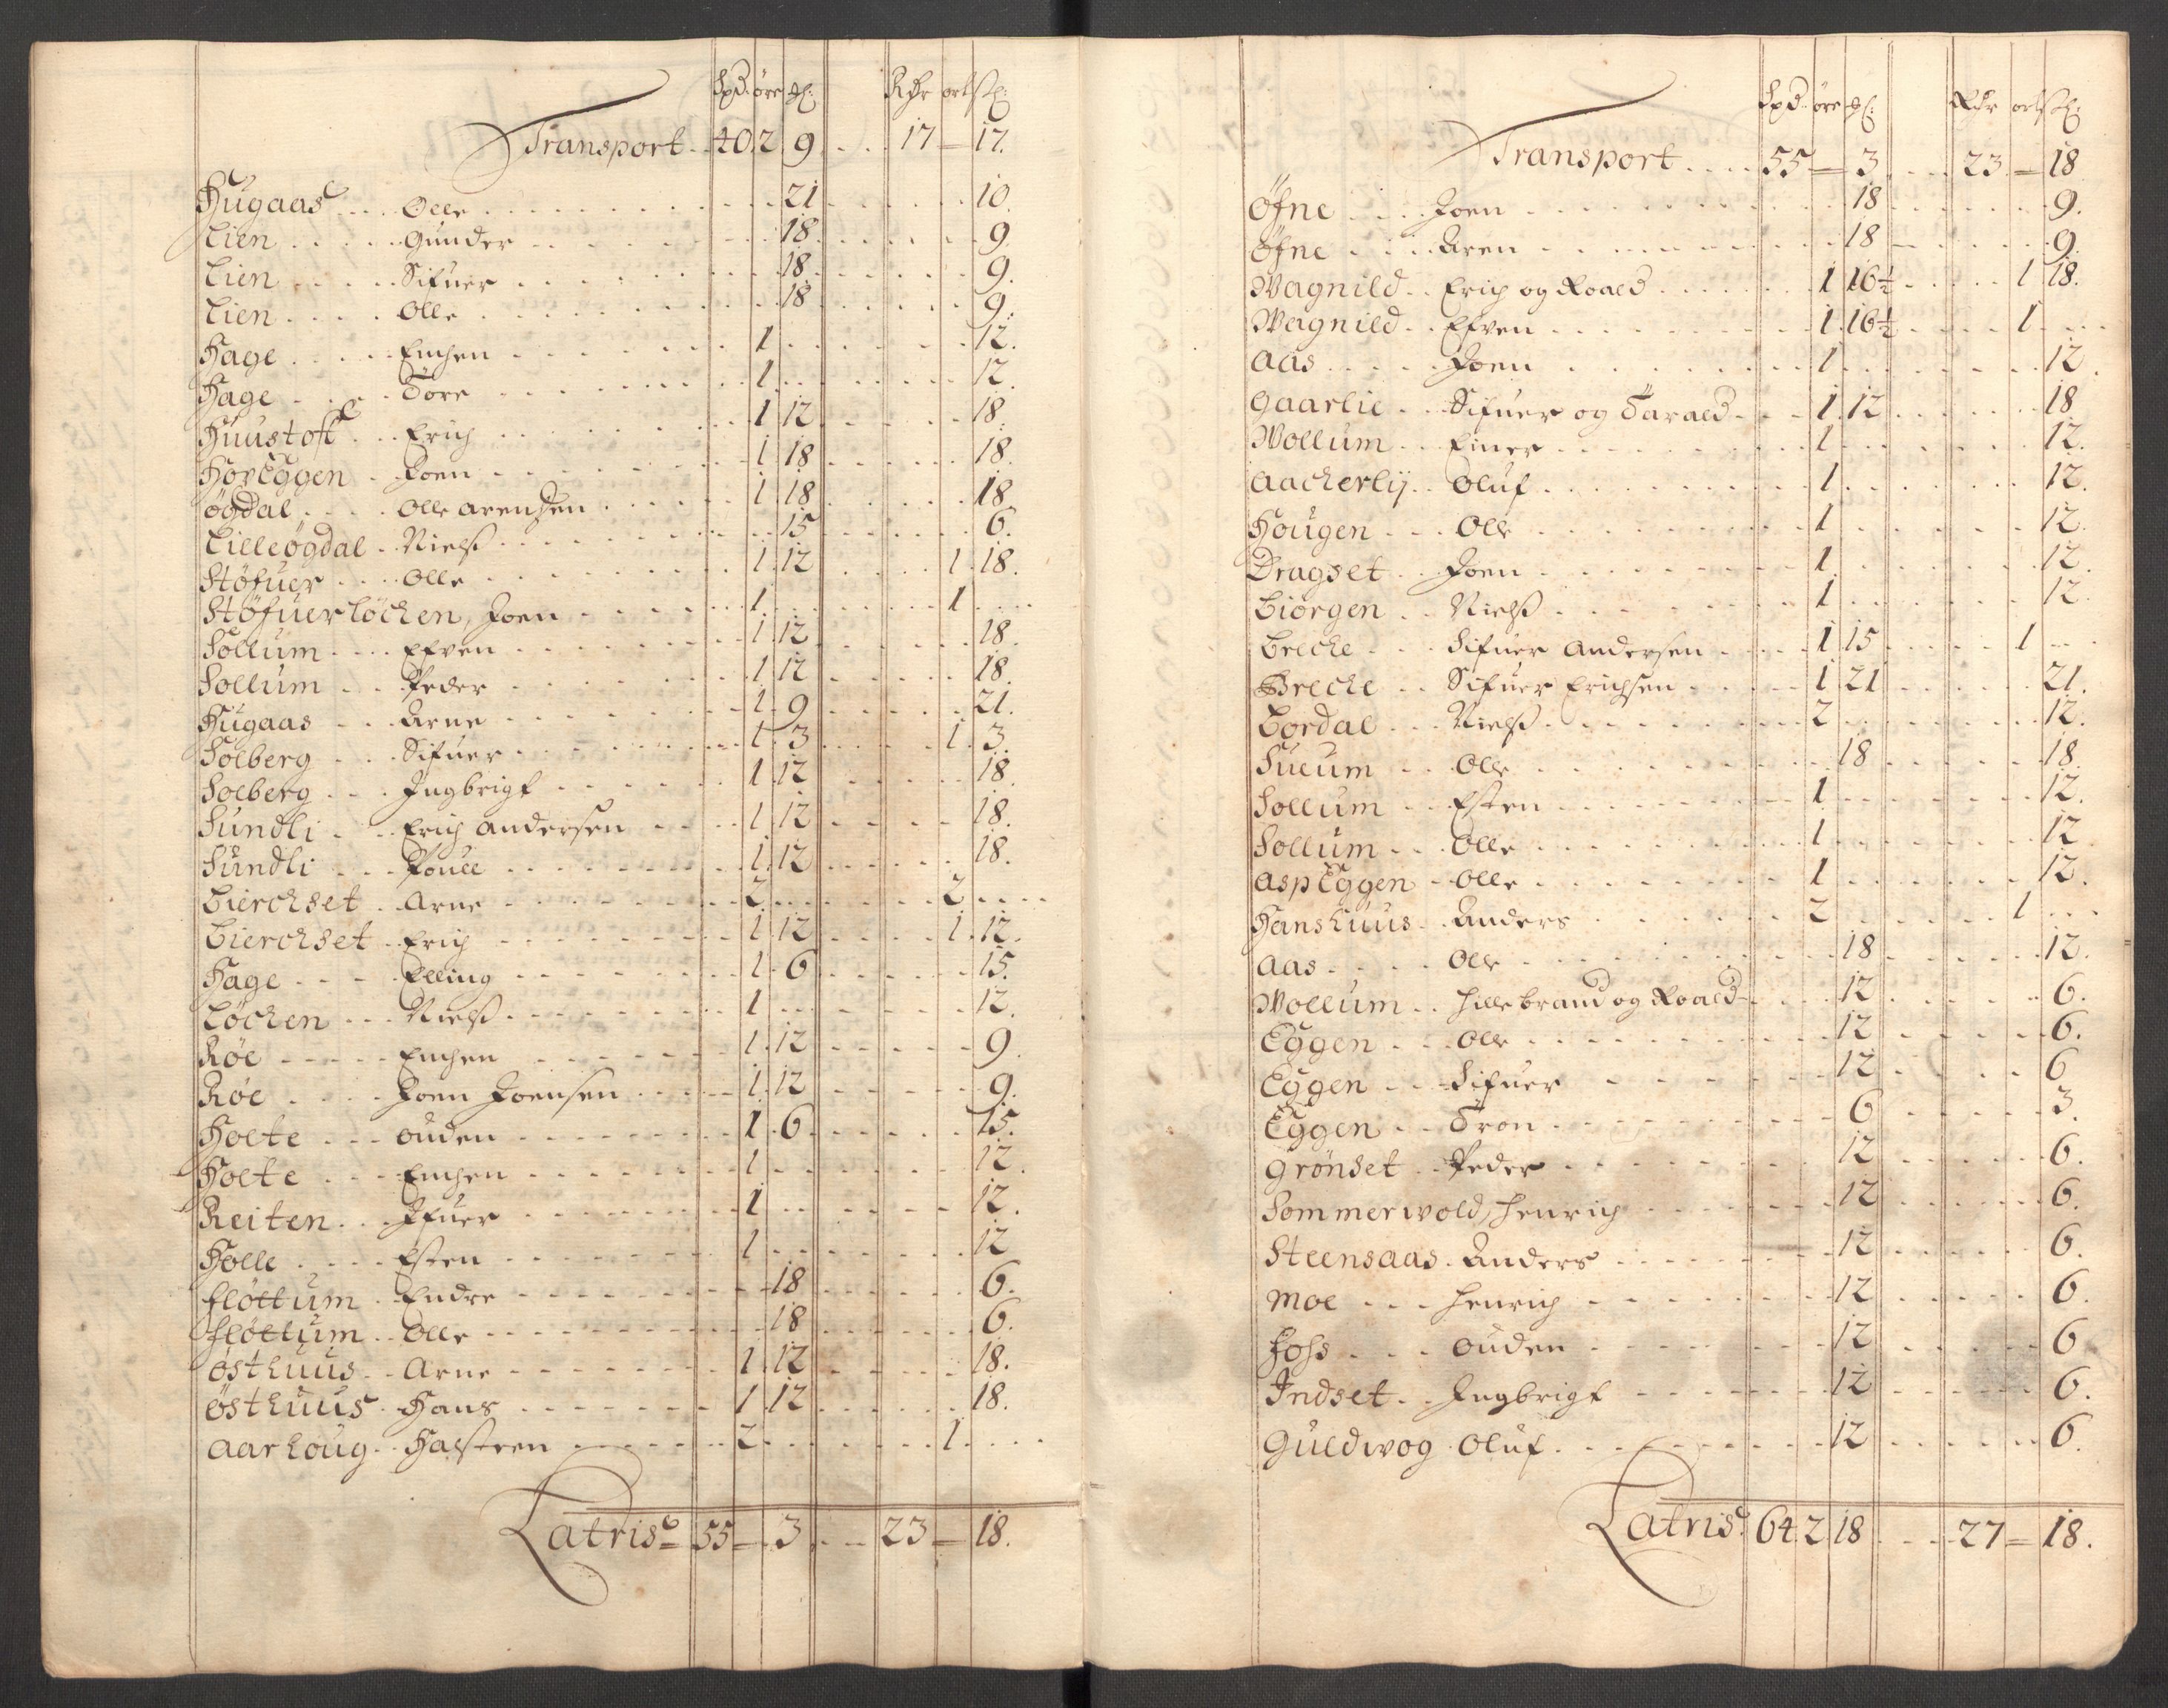 Spd. öre ₰: Rdr ort ß:
Transport 40. 2 9 17 — 17.
Hugaas Olle 21 10.
Lien Gunder 18 9.
Lien Sifuer 18 9.
Lien Olle 18 9.
Hage Enchen 1 12.
Hage Tore 1 12.
Huustoft Erich 1 12 18.
HovEggen Joen 1 18 18.
Øgdal Olle Arensen 1 18 18.
Lilleøgdal Nielß 15 6.
Støfuer Olle 1 12 1 18.
Støfuerløchen, Joen 1 1
Sollum Efven 1 12 18.
Sollum Peder 1 12 18.
Hugaas Arne 1 9 21.
Solberg Sifuer 1 3 1 3.
Solberg Ingbrigt 1 12 18.
Sundli Erich Andersen 1 12 18.
Sundli Pouel 1 12 18.
Bierchset Arne 2 2
Bierchset Erich 1 12 1 12.
Hage Elling 1 6 15.
Løchen Nielß 1 12.
Røe Enchen 1 12 9.
Røe Joen Joensen 1 12 9.
Holte Ouden 1 6 15.
Holte Enchen 1 12.
Reiten Ifuer 1 12.
Holle Esten 1 12
Fløttum Endre 18 6.
Fløttum Olle 18 6.
Østhuus Arne 1 12 18.
Østhuus Hans 1 12 18.
Aarhoug Halsteen 2 1
Latris 55 — 3 23 — 18.
Spd. öre ₰: Rdr ort ß:
Transport 55 — 3 23 — 18
Øfne Joen 18 9.
Øfne Aren 18 9.
Wagnild Erich og Roald 1 16½ 1 18.
Wagnild Efven 1 16½ 1
Aas Joen 1 12.
Gaarlie Sifuer og Tarald 1 12 18
Wollum Einer 1 12.
Aacherlij Oluf 1 12.
Hougen Olle 1 12.
Dragset Joen 1 12.
Biørgen Nielß 1 12.
Breche Sifuer Andersen 1 15 1
Breche Sifuer Erichsen 1 21 21.
Bordal Nielß 2 12.
Suium Olle 18 18.
Sollum Esten 1 12.
Sollum Olle 1 12
AspEggen Olle 1 12.
Hanshuus Anders 2 1
Aas Olle 18 12.
Wollum Hillebrand og Roald 12 6.
Eggen Olle 12 6.
Eggen Sifuer 12 6
Eggen Tron 6 3.
Grønset Peder 12 6.
Sommerwold, Henrich 12 6.
Steensaas Anders 12 6.
Moe Henrich 12 6.
Foss Ouden 12 6
Indset Ingbrigt 12 6.
Guldwog Oluf 12 6.
Latris 64 2 18 27 — 18.